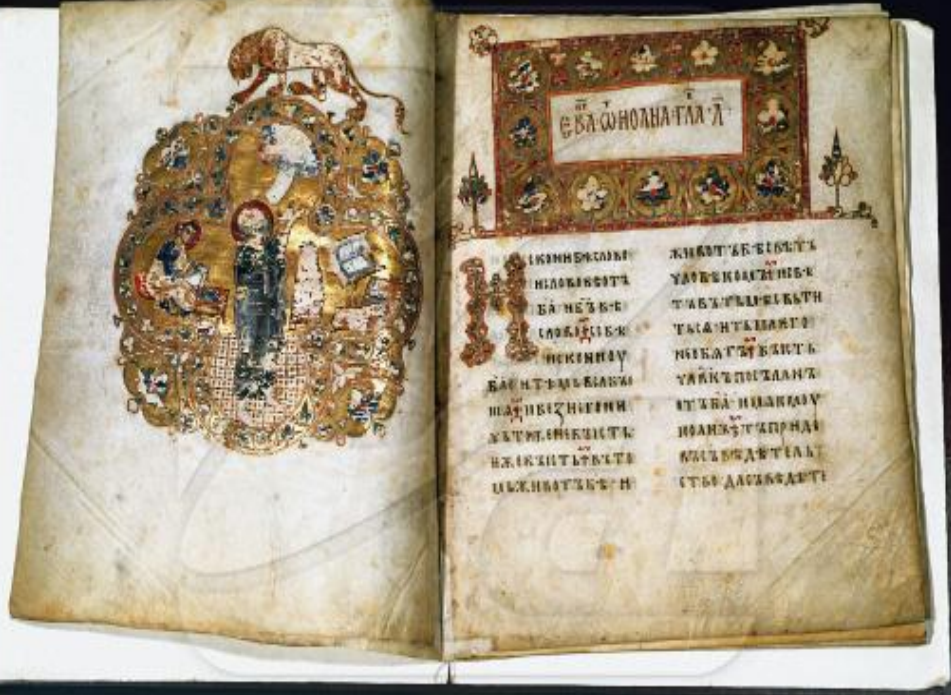 ЕВА·Ѿ ИОАНА·ГЛА·А҃·
ИСКОНИ БѢ СЛОВО
И СЛОВО БѢ ОТЪ
БА҃ И Б҃Ъ БѢ
СЛОВО·СЕ БѢ
ИСКОНИ ОУ
БА҃·И ТѢМЬ ВЬСѦ БЫ
ША·И БЕЖНЕГО НИ
ЧЬТОЖЕ НЕ БЫСТЬ·
ЕЖЕ БЫСТЬ·ВЪ ТО
МЬ ЖИВОТЪ БѢ·И
ЖИВОТЪ БѢ СВѢТЪ
ЧЛОВѢКОМЪ·И СВѢ
ТЪ ВЪ ТЬМѢ СВЬТИ
ТЬСѦ·И ТЬМА ѤГО
НЕ ОБѦТЪ·БЫСТЬ
ЧЛ҃КЪ ПОСЪЛАНЪ
ОТЪ БА҃·ИМѦ ѤМОУ
ИОАНЪ·ТЪ ПРИДЕ
ВЪ СЪВѢДѢТЕЛЬ
СТВО·ДА СЪВѢДѢТЕ